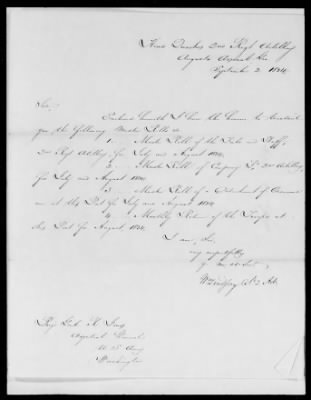 Head Quarters 2nd Regt Artillery
Augusta Arsenal Ga
September 2. 1844.
Sir,
Enclosed herewith I have the honor to transmit
you the following Muster Rolls &c
1. Muster Roll of the Field and Staff,
2nd Regt Artillery for July and August 1844.
2. Muster Roll of Company 2nd Artillery,
for July and August 1844
3. Muster Roll of Detachment of Ordnance
men at this Post for July and August 1844
4. Monthly Return of the Troops at
this Post for August 1844.
I am, Sir,
very respectfully
Yr mo. ob. Svt.
Brig Genl R Jones
Adjutant General
U. S. Army
Washington